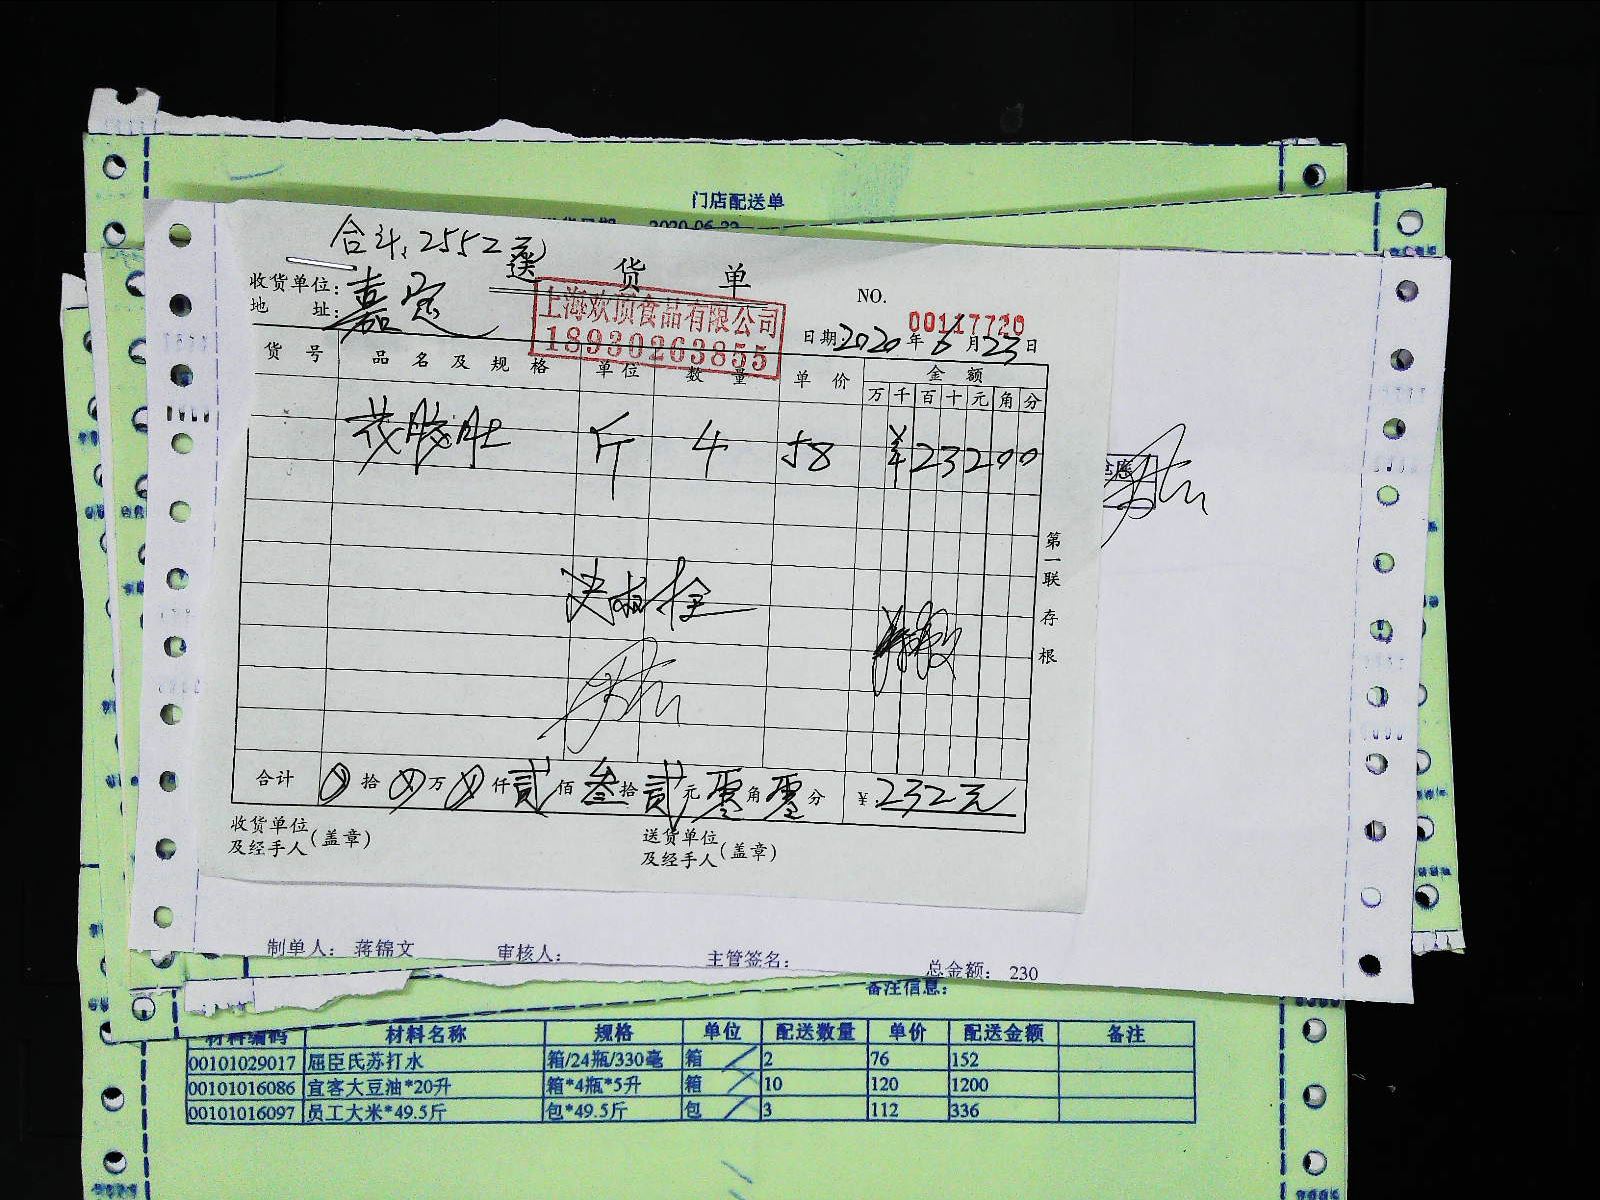 门店配送单
2020-06-22
合计:2552元
送 货 单
收货单位: 嘉定
地 址:
上海欢顶食品有限公司
18930263855
NO.
00117720
日期 2020 年 6 月 23 日
货 号 品 名 及 规 格 单位 数 量 单 价 金 额
万 千 百 十 元 角 分
花胶肚 斤 4 58 ¥23200
第一联 存根
合计 拾 万 仟 贰 佰 叁 拾 贰 元 零 角 零 分 ¥:232元
收货单位 及经手人(盖章) 送货单位 及经手人(盖章)
制单人: 蒋锦文 审核人: 主管签名: 总金额: 230
备注信息:
材料编码 材料名称 规格 单位 配送数量 单价 配送金额 备注
00101029017 屈臣氏苏打水 箱/24瓶/330毫 箱 2 76 152
00101016086 宜客大豆油*20升 箱*4瓶*5升 箱 10 120 1200
00101016097 员工大米*49.5斤 包*49.5斤 包 3 112 336